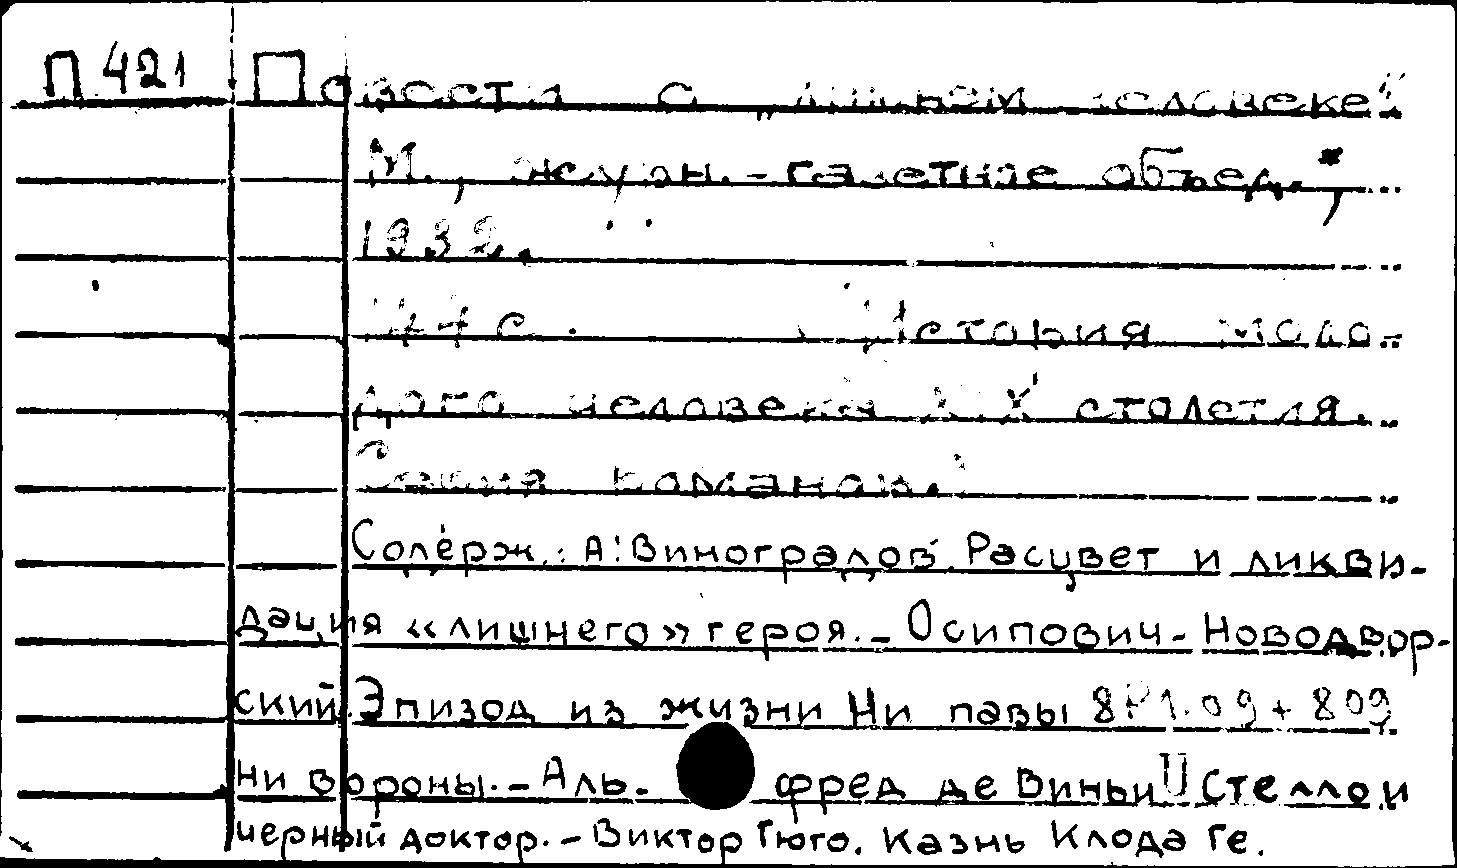 П 421 Повести о „лишнем человеке“
М., журн.-газетное объед.,
1932.
с. История моло-
дого человека XIX столетия.
Серия романов.
Содерж.: А. Виноградов. Расцвет и ликви-
дация «лишнего» героя. - Осипович-Новодвор-
ский. Эпизод из жизни Ни павы 8Р1.09 + 809
ни вороны. - Аль- фред де Виньи U Стелло и
черный доктор. - Виктор Гюго. Казнь Клода Ге.